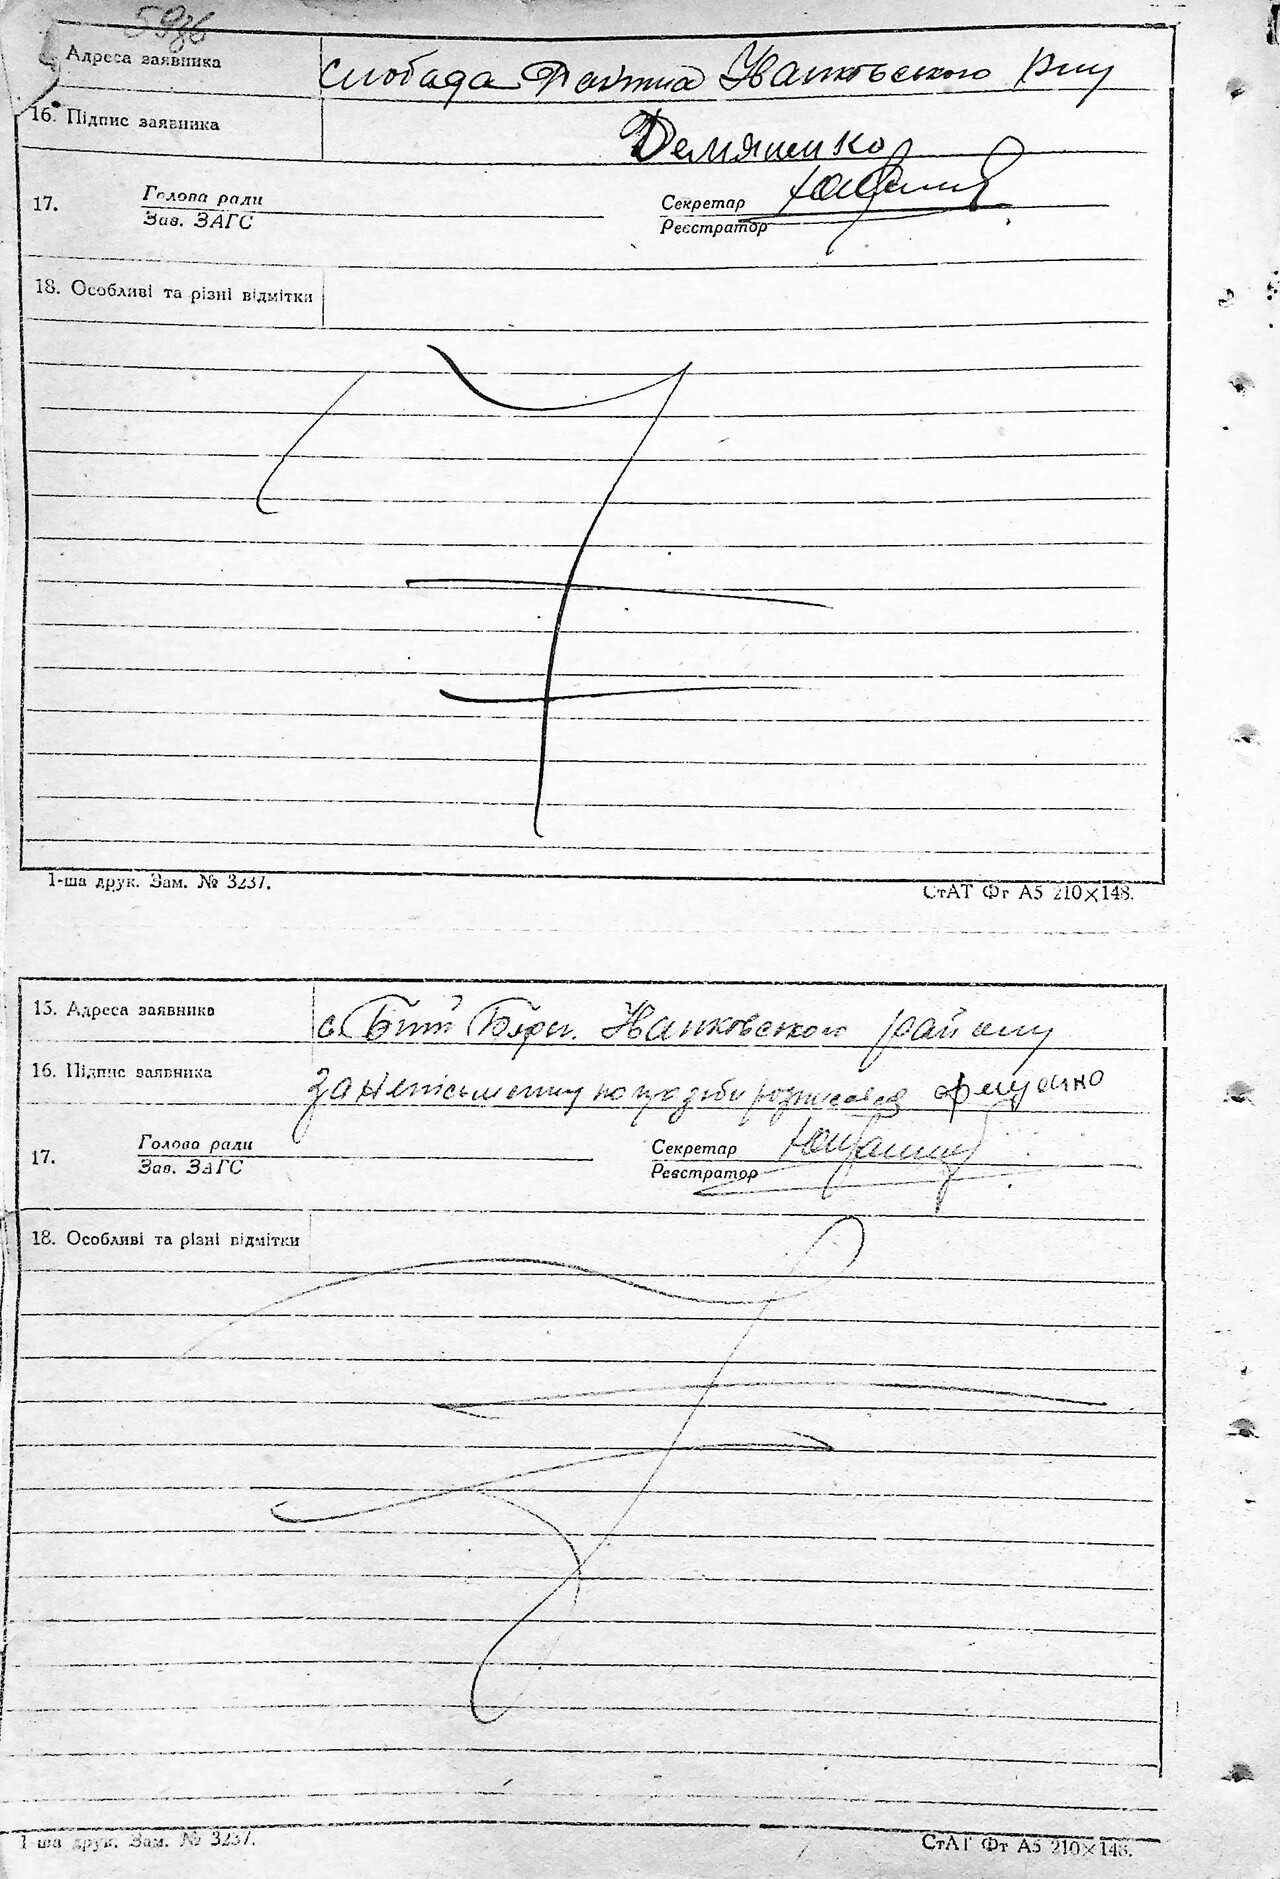 Адреса заявника слобада Іванковського р-ну
16. Підпис заявника Демяненко
17. Голова ради Секретар
Зав. ЗАГС Реєстратор
18. Особливі та різні відмітки
1-ша друк. Зам. № 3237.
СтАТ Фт А5 210×148.
15. Адреса заявника с. Іванковського району
16. Підпис заявника за неписьменну по розписався
17. Голова ради Секретар
Зав. ЗАГС Реєстратор
18. Особливі та різні відмітки
1-ша друк. Зам. № 3237.
СтАТ Фт А5 210×148.